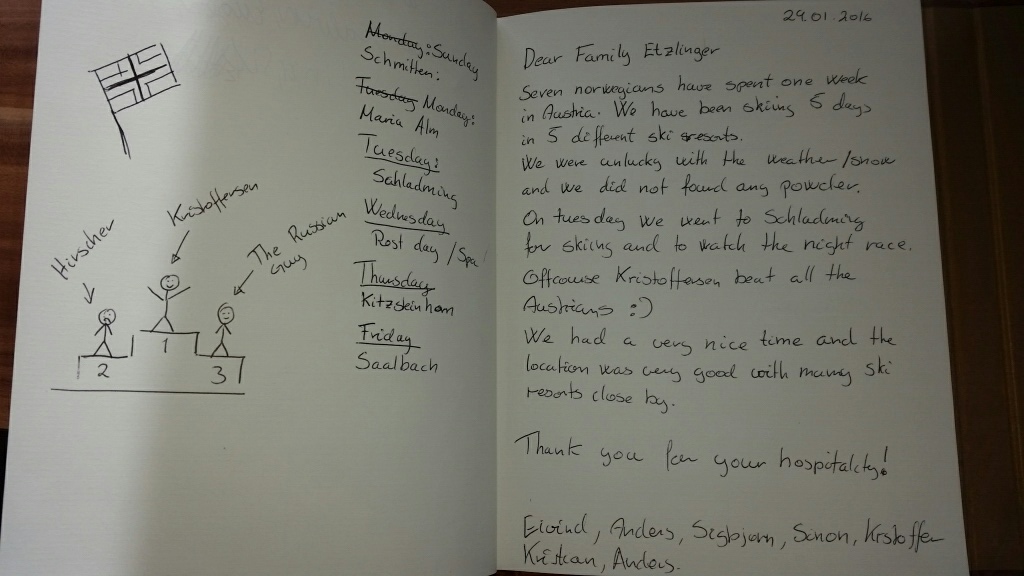 Hirscher
Kristoffersen
The Russian
Guy
2
1
3
Monday: Sunday
Schmitten:
Tuesday Monday:
Maria Alm
Tuesday:
Schladming
Wednesday
Rest day / Spa
Thursday
Kitzsteinhorn
Friday
Saalbach
29.01.2016
Dear Family Etzlinger
Seven norwegians have spent one week
in Austria. We have been skiing 5 days
in 5 different ski resorts.
We were unlucky with the weather/snow
and we did not found any powder.
On tuesday we went to Schladming
for skiing and to watch the night race.
Offcourse Kristoffersen beat all the
Austrians :)
We had a very nice time and the
location was very good with many ski
resorts close by.
Thank you for your hospitality!
Eivind, Anders, Sigbjørn, Simon, Kristoffer
Kristian, Anders.